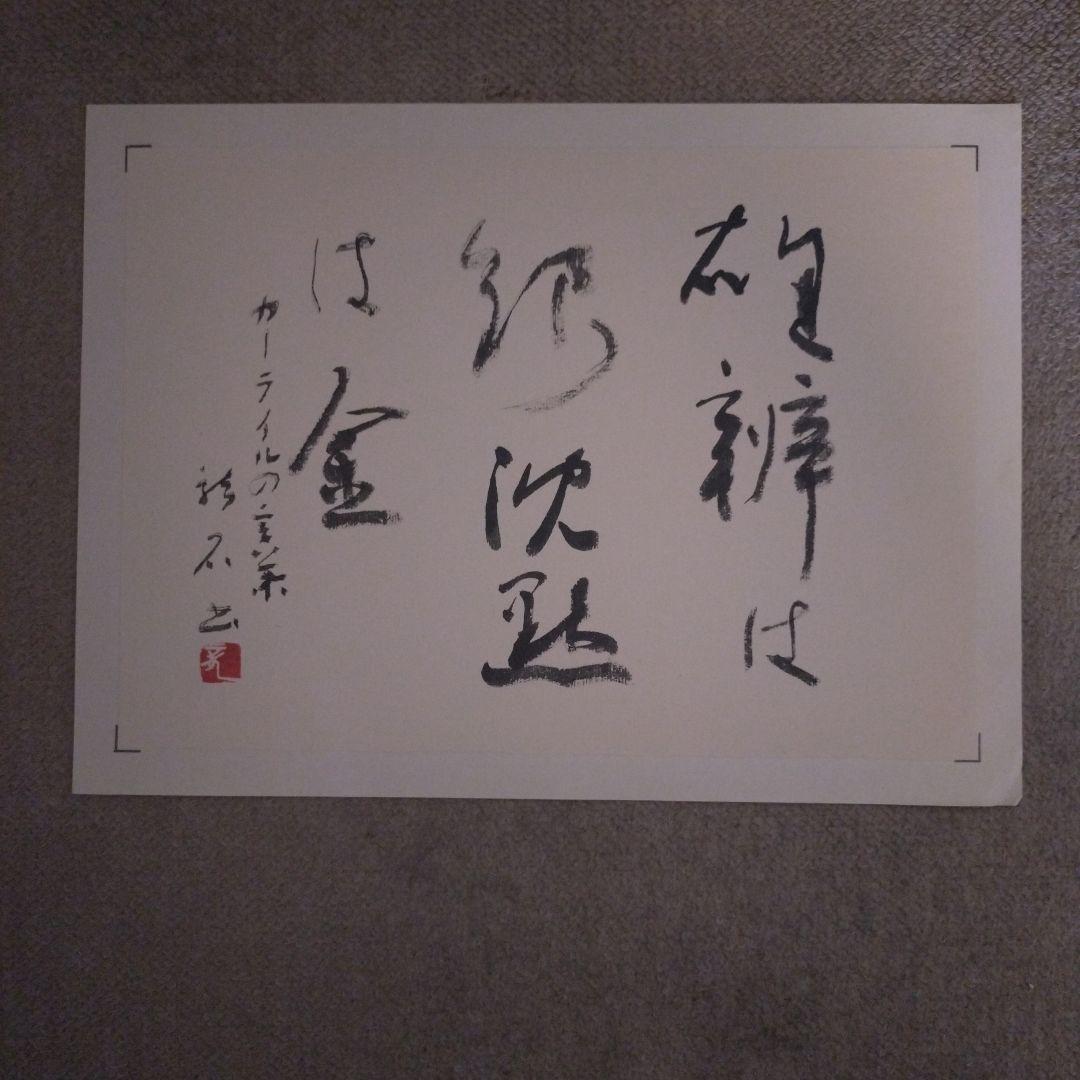 雄辨は
銀沈黙
は金
カーライルの言葉
石書